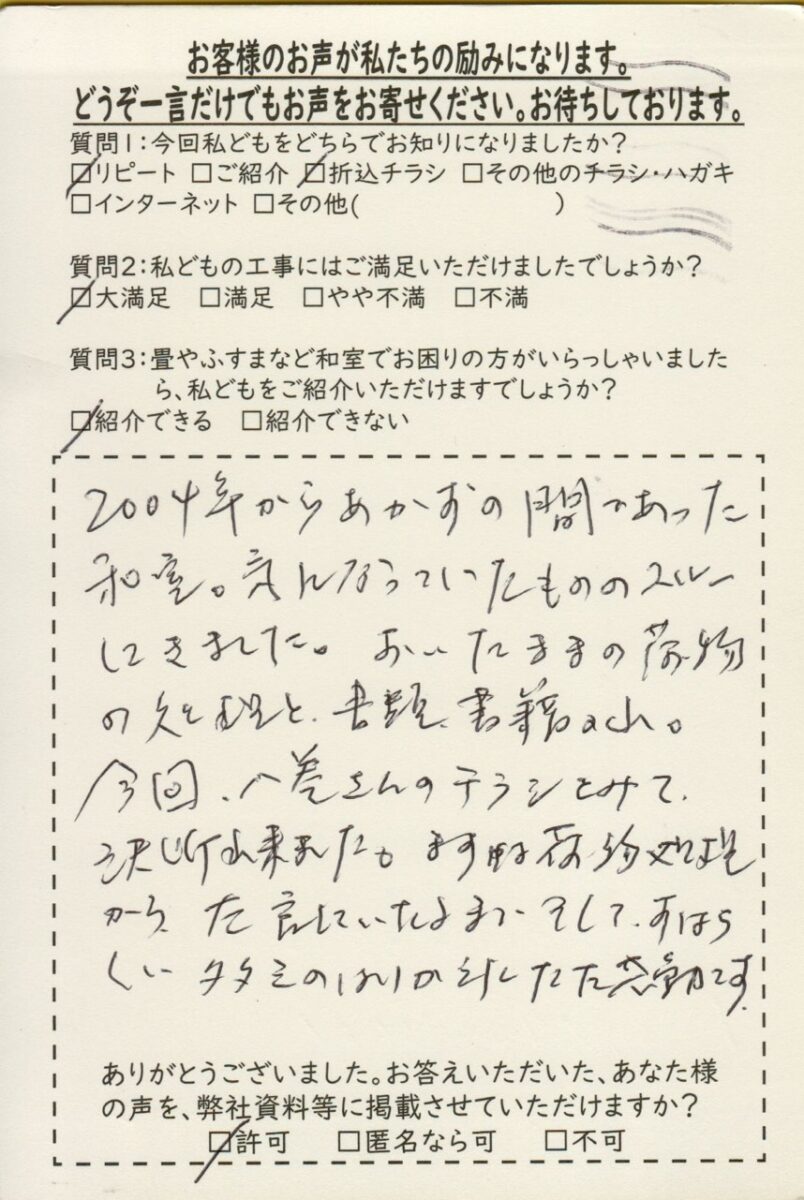 お客様のお声が私たちの励みになります。
どうぞ一言だけでもお声をお寄せください。お待ちしております。
質問1:今回私どもをどちらでお知りになりましたか?
☑リピート □ご紹介 ☑折込チラシ □その他のチラシ・ハガキ
□インターネット □その他( )
質問2:私どもの工事にはご満足いただけましたでしょうか?
☑大満足 □満足 □やや不満 □不満
質問3:畳やふすまなど和室でお困りの方がいらっしゃいました
ら、私どもをご紹介いただけますでしょうか?
☑紹介できる □紹介できない
2004年からあかずの間であった
和室。気になっていたもののスルー
してきました。おいたままの荷物
の処理と、書類、書籍の山。
今回、八巻さんのチラシをみて、
決断出来ました。まずは荷物処理
から、
そして、すばら
しいタタミの
感動です。
ありがとうございました。お答えいただいた、あなた様
の声を、弊社資料等に掲載させていただけますか?
☑許可 □匿名なら可 □不可